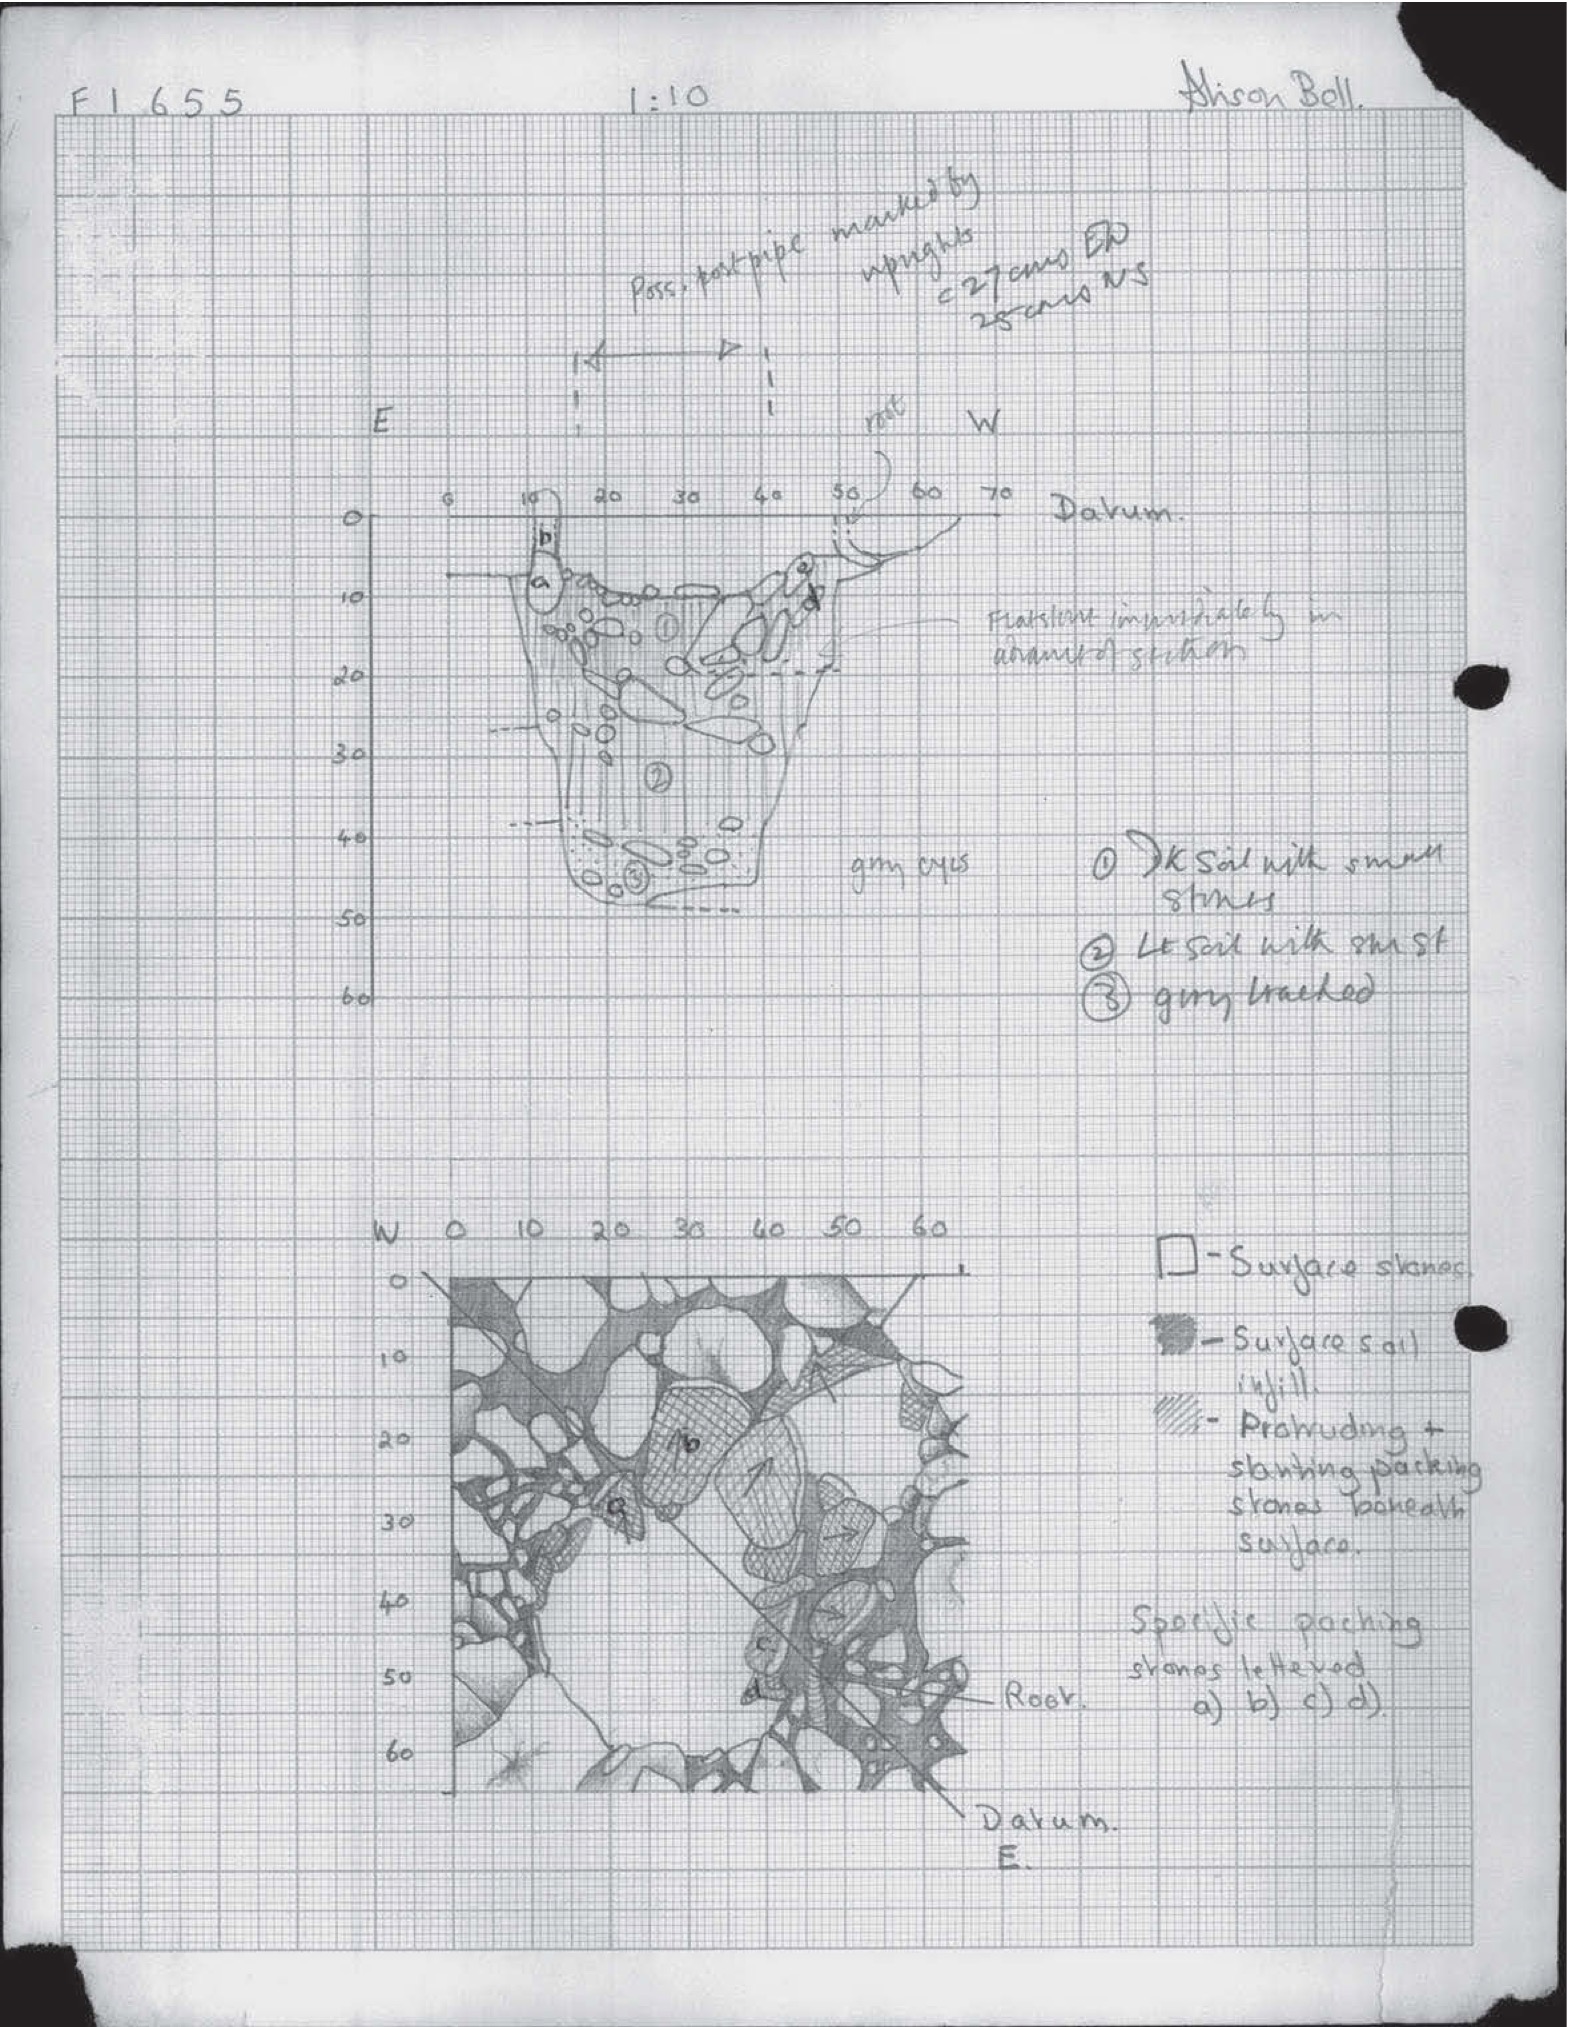 F1655
1:10
Alison Bell.
Poss. postpipe marked by
uprights
c 27 cms EW
25 cms NS
E
root
W
0 10 20 30 40 50 60 70
Datum.
0
b
a
10
1
d
Flatstone immediately in
advance of section
20
30
2
40
3
50
60
① Dk soil with small
stones
② Lt soil with sm st
③
W 0 10 20 30 40 50 60
0
10
20
30
40
50
60
b
a
c
d
- Surface stones.
- Surface soil
infill.
- Protruding +
slanting packing
stones beneath
surface.
Specific packing
stones lettered
a) b) c) d).
Root.
Datum.
E.